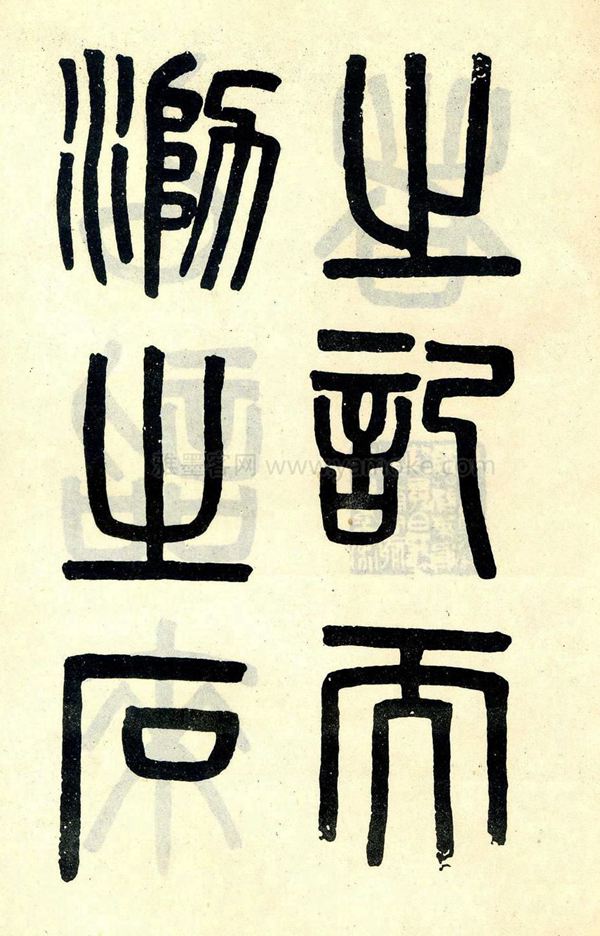 之記而
泐之石
雅墨客网 www.yamoke.com